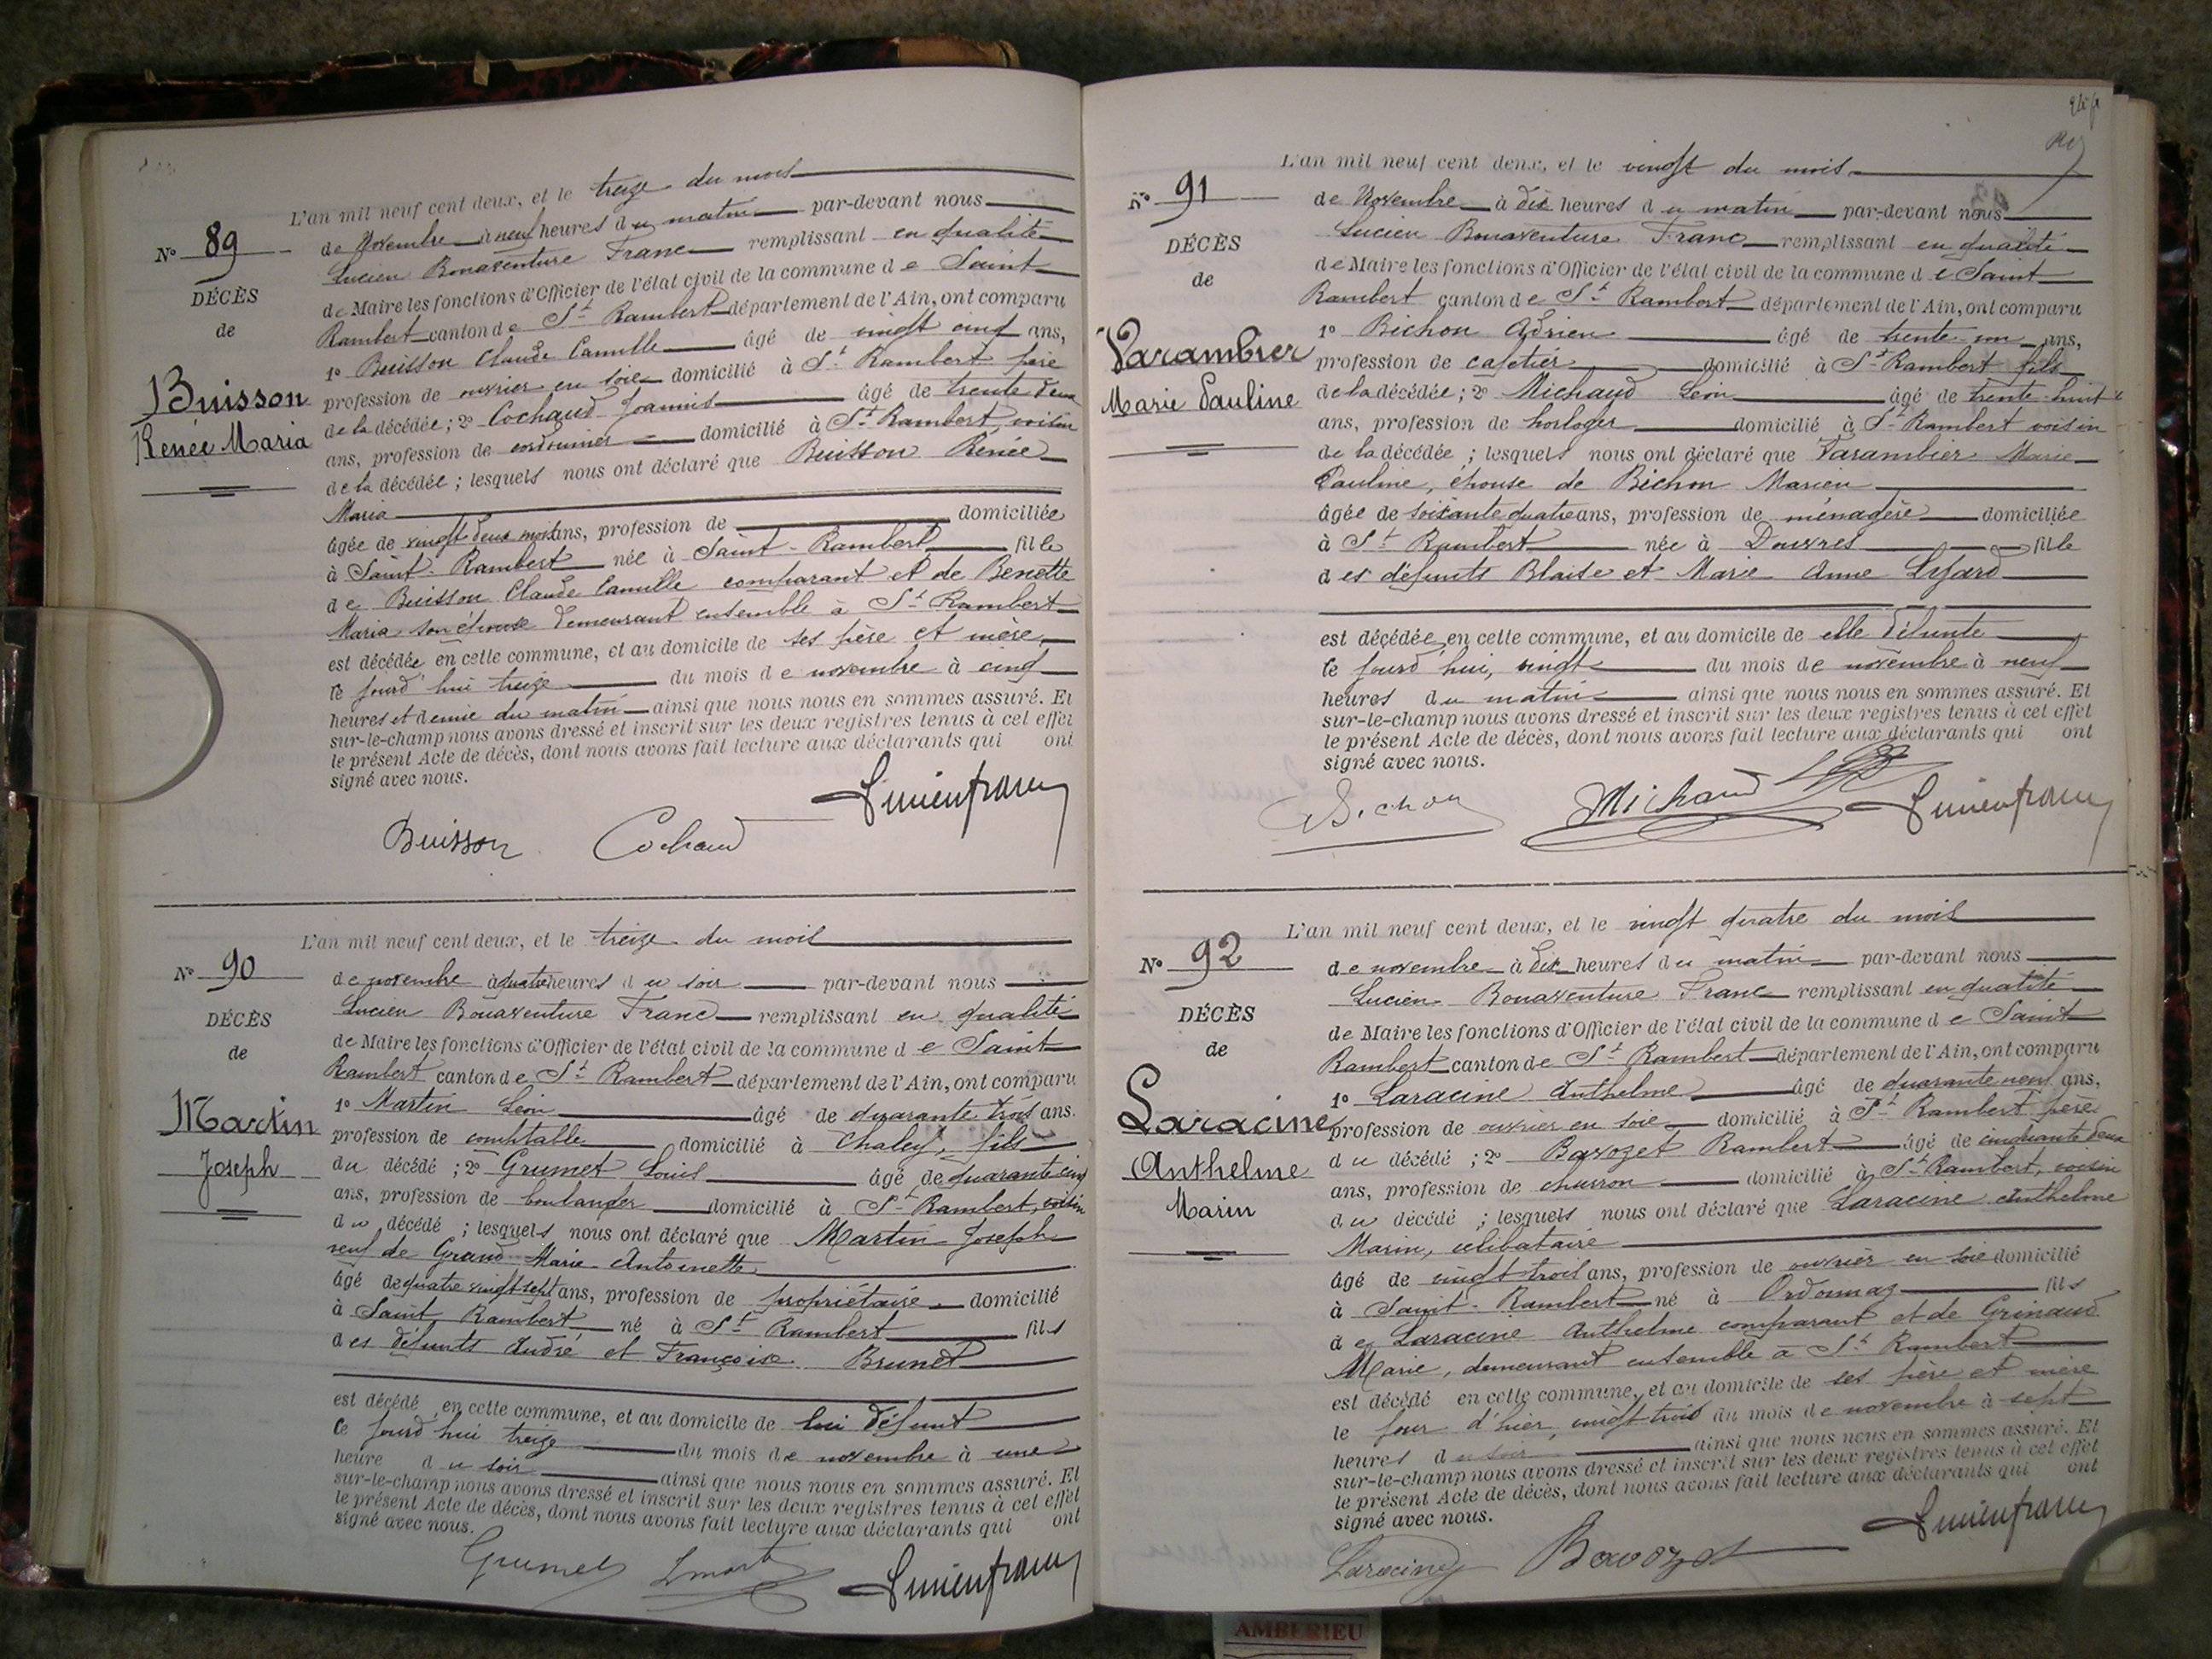 L'an mil neuf cent deux, et le treize du mois
N° 89
de Novembre à neuf heures du matin par-devant nous
DÉCÈS
Lucien Bonaventure Franc remplissant en qualité
de
de Maire les fonctions d'Officier de l'état civil de la commune de Saint
Rambert canton de St Rambert département de l'Ain, ont comparu
1° Buisson Claude Camille âgé de vingt cinq ans,
Buisson
profession de ouvrier en soie domicilié à St Rambert père
Renée Maria
de la décédée; 2° Cochaud Joannis âgé de trente deux
ans, profession de cordonnier domicilié à St Rambert voisin
de la décédée; lesquels nous ont déclaré que Buisson Renée
Maria
âgée de vingt deux mois ans, profession de domiciliée
à Saint-Rambert née à Saint-Rambert fille
de Buisson Claude Camille comparant et de Benette
Maria son épouse demeurant ensemble à St Rambert
est décédée en cette commune, et au domicile de ses père et mère,
ce jourd'hui treize du mois de novembre à cinq
heures et demie du matin ainsi que nous nous en sommes assuré. Et
sur-le-champ nous avons dressé et inscrit sur les deux registres tenus à cet effet
le présent Acte de décès, dont nous avons fait lecture aux déclarants qui ont
signé avec nous.
Buisson Cochaud Lucien franc
L'an mil neuf cent deux, et le treize du mois
N° 90
de novembre à quatre heures du soir par-devant nous
DÉCÈS
Lucien Bonaventure Franc remplissant en qualité
de
de Maire les fonctions d'Officier de l'état civil de la commune de Saint
Rambert canton de St Rambert département de l'Ain, ont comparu
Martin
1° Martin Léon âgé de quarante trois ans.
Joseph
profession de comptable domicilié à Chaley, fils
du décédé; 2° Grumet Louis âgé de quarante cinq
ans, profession de boulanger domicilié à St Rambert, voisin
du décédé; lesquels nous ont déclaré que Martin Joseph
veuf de Grand Marie Antoinette
âgé de quatre vingt sept ans, profession de propriétaire domicilié
à Saint Rambert né à St Rambert fils
des défunts André et Françoise Brunet
est décédé en cette commune, et au domicile de lui défunt
ce jourd'hui treize du mois de novembre à une
heure du soir ainsi que nous nous en sommes assuré. Et
sur-le-champ nous avons dressé et inscrit sur les deux registres tenus à cet effet
le présent Acte de décès, dont nous avons fait lecture aux déclarants qui ont
signé avec nous.
Grumet Lmart Lucien franc
L'an mil neuf cent deux, et le vingt du mois
N° 91
de Novembre à dix heures du matin par-devant nous
DÉCÈS
Lucien Bonaventure Franc remplissant en qualité
de
de Maire les fonctions d'Officier de l'état civil de la commune de Saint
Rambert canton de St Rambert département de l'Ain, ont comparu
1° Bichon Adrien âgé de trente un ans,
Varambier
profession de cafetier domicilié à St Rambert fils
Marie Pauline
de la décédée; 2° Michaud Léon âgé de trente-huit
ans, profession de horloger domicilié à St Rambert voisin
de la décédée; lesquels nous ont déclaré que Varambier Marie
Pauline, épouse de Bichon Marien
âgée de soixante quatre ans, profession de ménagère domiciliée
à St Rambert née à Douvres fille
des défunts Blaise et Marie Anne
est décédée en cette commune, et au domicile de elle défunte
ce jourd'hui, vingt du mois de novembre à neuf
heures du matin ainsi que nous nous en sommes assuré. Et
sur-le-champ nous avons dressé et inscrit sur les deux registres tenus à cet effet
le présent Acte de décès, dont nous avons fait lecture aux déclarants qui ont
signé avec nous.
Bichon Michaud Lucien franc
L'an mil neuf cent deux, et le vingt quatre du mois
N° 92
de novembre à dix heures du matin par-devant nous
DÉCÈS
Lucien Bonaventure Franc remplissant en qualité
de
de Maire les fonctions d'Officier de l'état civil de la commune de Saint
Rambert canton de St Rambert département de l'Ain, ont comparu
Laracine
1° Laracine Anthelme âgé de quarante neuf ans,
Anthelme
profession de ouvrier en soie domicilié à St Rambert père
Marin
du décédé; 2° Bavozet Rambert âgé de cinquante deux
ans, profession de charron domicilié à St Rambert, voisin
du décédé; lesquels nous ont déclaré que Laracine Anthelme
Marin, célibataire
âgé de vingt-trois ans, profession de ouvrier en soie domicilié
à Saint-Rambert né à Ordonnaz fils
de Laracine Anthelme comparant et de Grinand
Marie, demeurant ensemble à St Rambert
est décédé en cette commune, et au domicile de ses père et mère
le jour d'hier, vingt trois du mois de novembre à sept
heures du soir ainsi que nous nous en sommes assuré. Et
sur-le-champ nous avons dressé et inscrit sur les deux registres tenus à cet effet
le présent Acte de décès, dont nous avons fait lecture aux déclarants qui ont
signé avec nous.
Laracine Bavozet Lucien franc
AMBERIEU